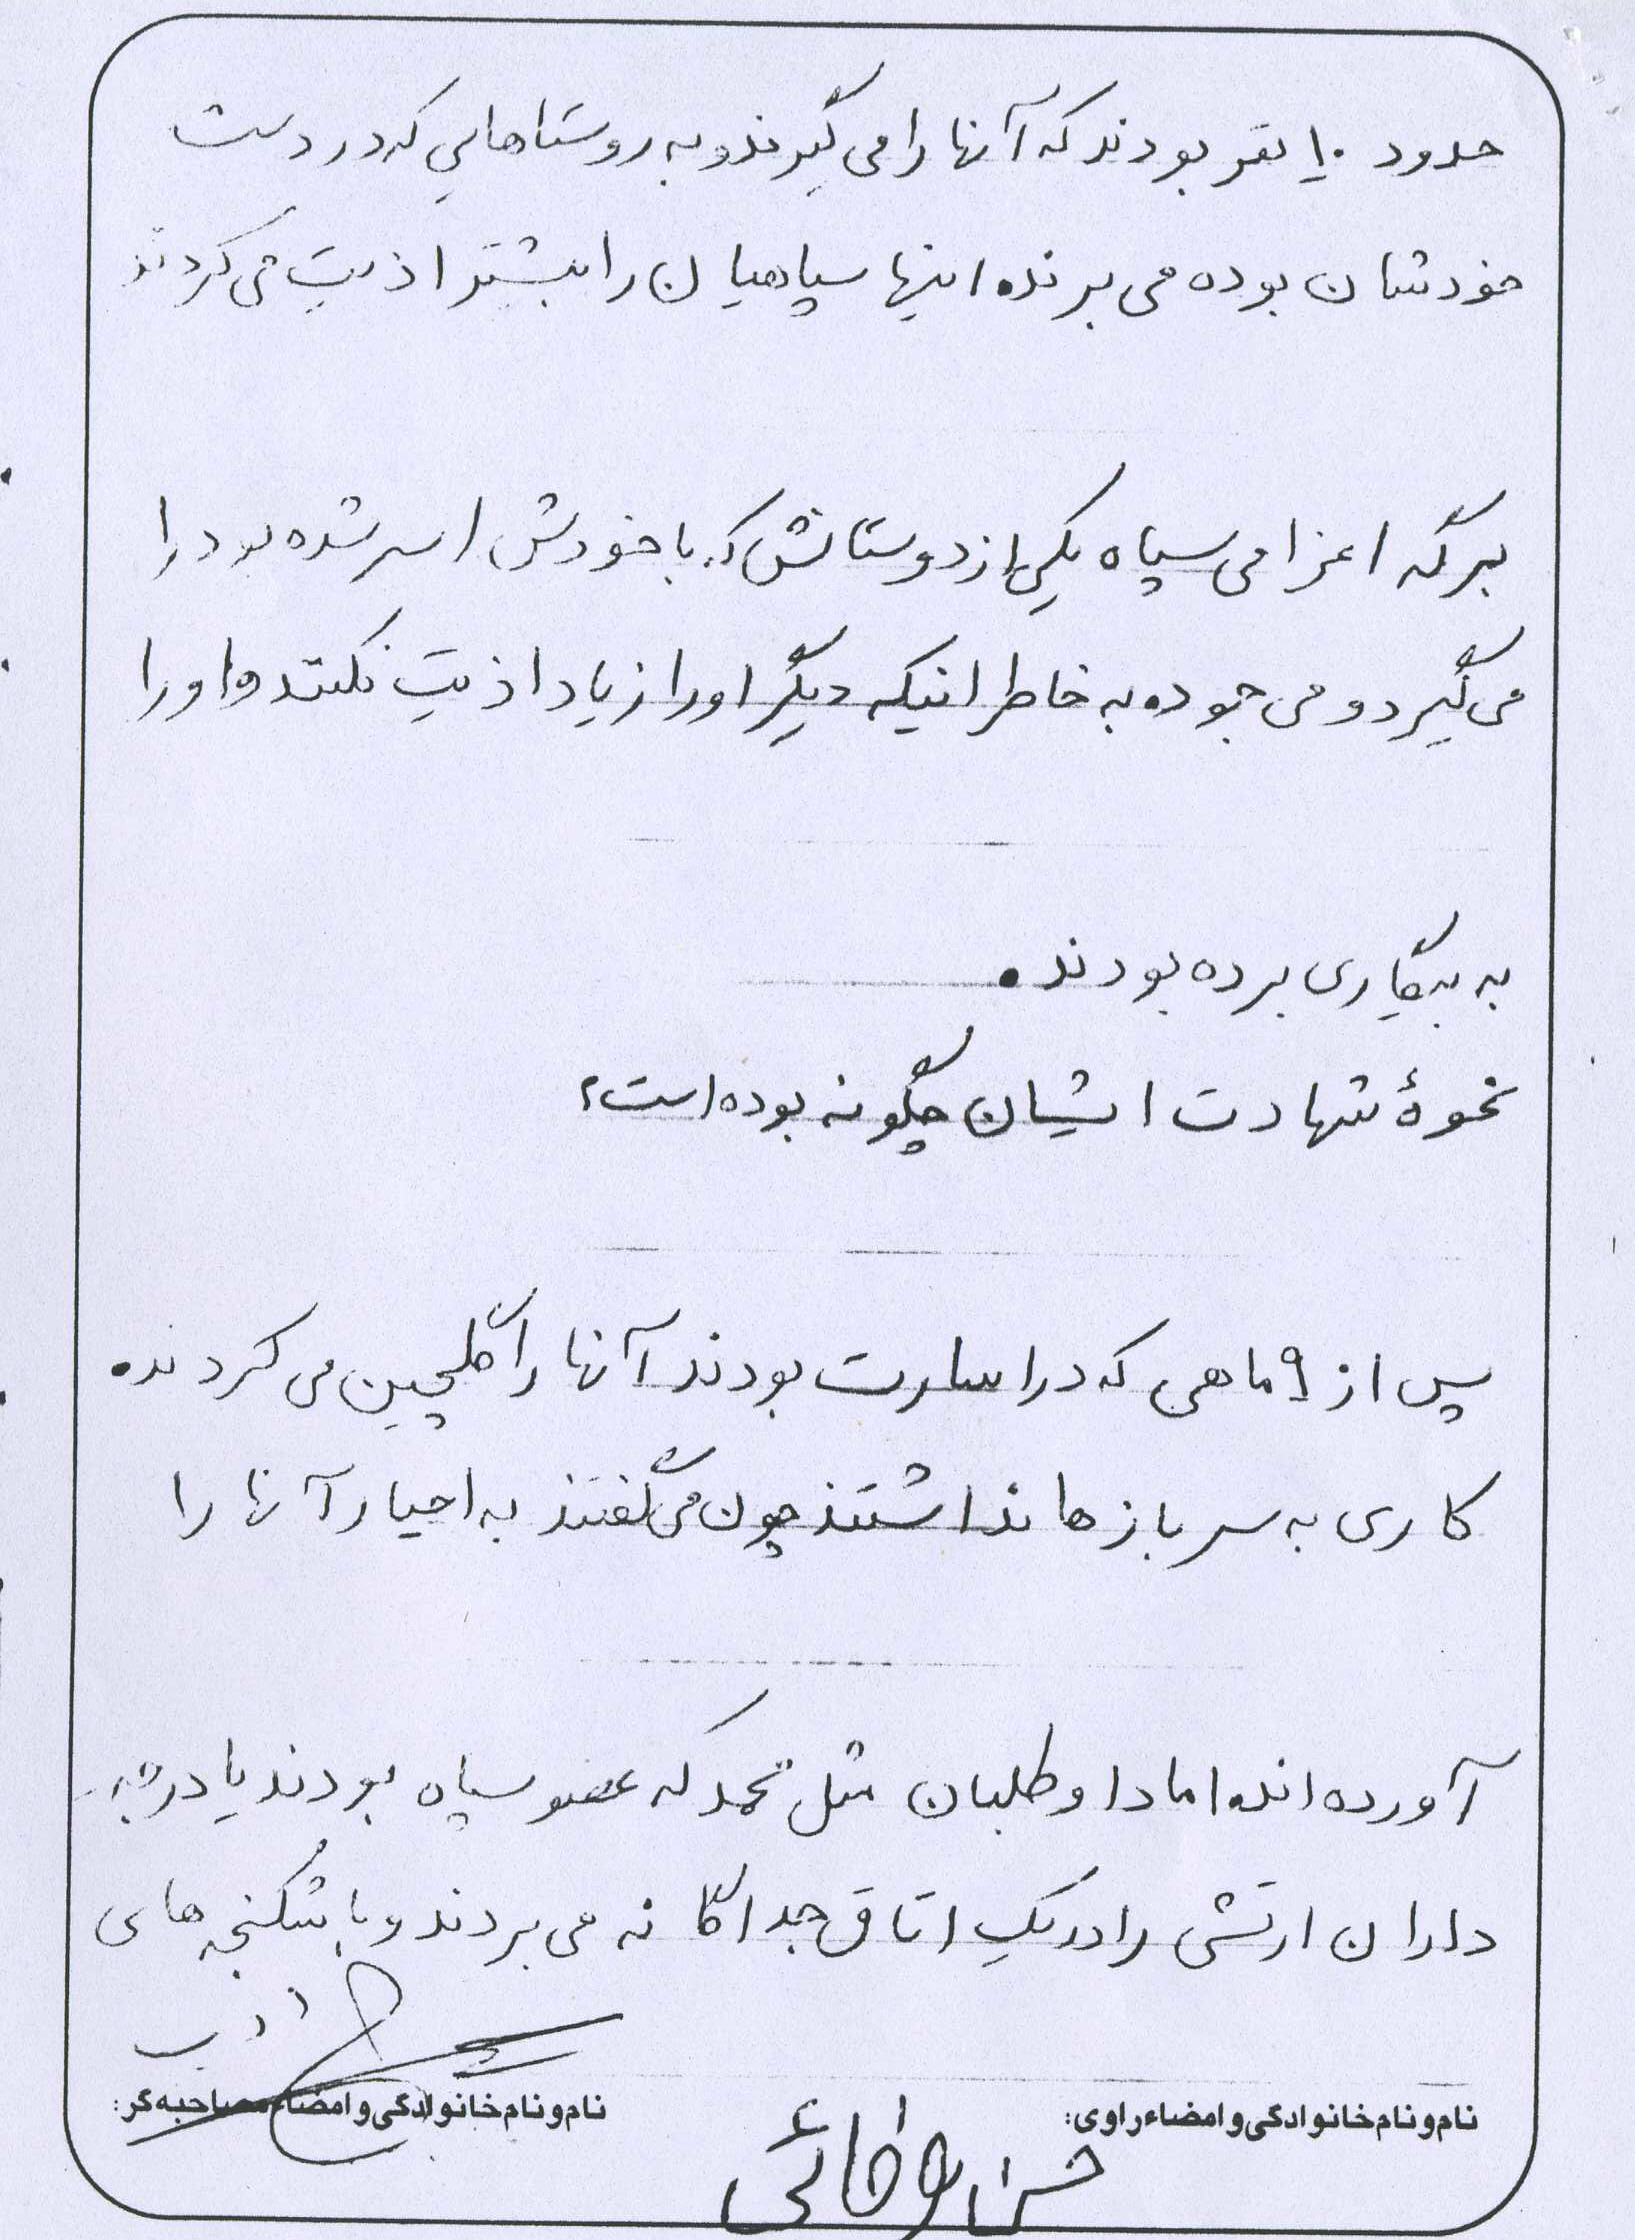 حدود ۱۰ نفر بودند که آنها را می گیرند و به روستاهایی که در دست
خودشان بوده می برند. اینها سپاهیان را بیشتر اذیت می کردند
برگه اعزامی سپاه یکی از دوستانش که با خودش اسیر شده بود را
می گیرد و می جوده به خاطر اینکه دیگر او را زیاد اذیت نکنند و او را
به بیگاری برده بودند.
نحوهٔ شهادت ایشان چگونه بوده است؟
پس از ۹ ماهی که در اسارت بودند آنها را گلچین می کردند.
کاری به سربازها نداشتند چون می گفتند به اجبار آنها را
آورده اند. اما داوطلبان مثل محمد که عضو سپاه بودند یا درجه
داران ارتشی را در یک اتاق جداگانه می بردند و با شکنجه های
نام و نام خانوادگی و امضاء راوی:
نام و نام خانوادگی و امضاء مصاحبه گر:
حسن